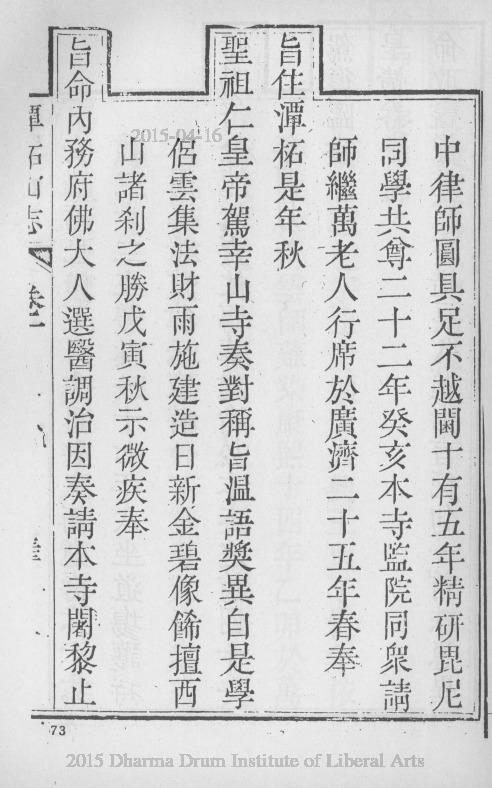 中律師圓具足不越閫十有五年精研毘尼
同學共尊二十二年癸亥本寺監院同衆請
師繼萬老人行席於廣濟二十五年春奉
旨住潭柘是年秋
聖祖仁皇帝駕幸山寺奏對稱旨溫語奬異自是學
侶雲集法財雨施建造日新金碧像飾擅西
山諸刹之勝戊寅秋示微疾奉
旨命內務府佛大人選醫調治因奏請本寺闍黎止
潭柘山志 卷一
73
2015-04-16
2015 Dharma Drum Institute of Liberal Arts